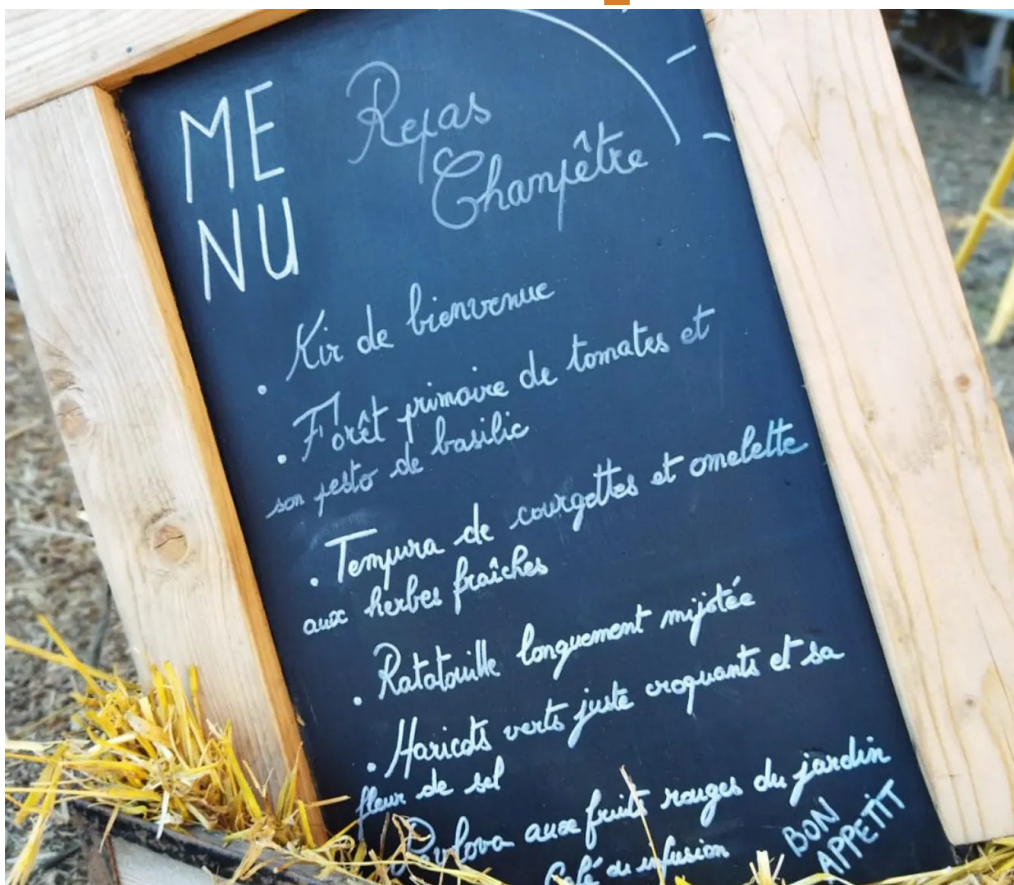 ME
NU
Repas
Champêtre
. Kir de bienvenue
. Forêt primaire de tomates et
son pesto de basilic
. Tempura de courgettes et omelette
aux herbes fraîches
. Ratatouille longuement mijotée
. Haricots verts juste croquants et sa
fleur de sel
Pavlova aux fruits rouges du jardin
Café ou infusion
BON
APPETIT